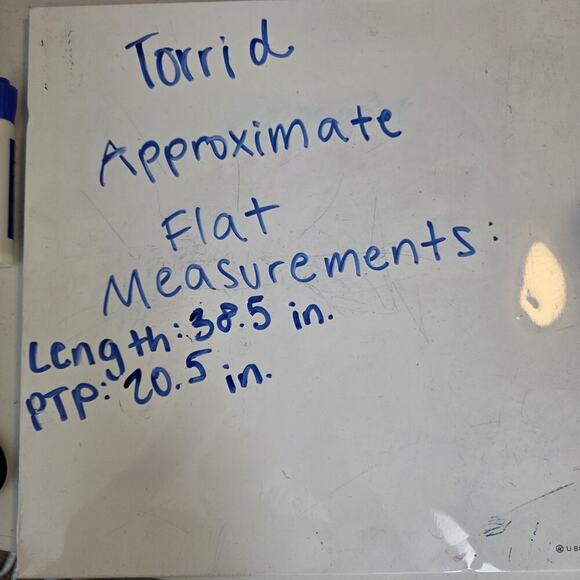 Torrid
Approximate
Flat
Measurements:
Length: 38.5 in.
PTP: 20.5 in.